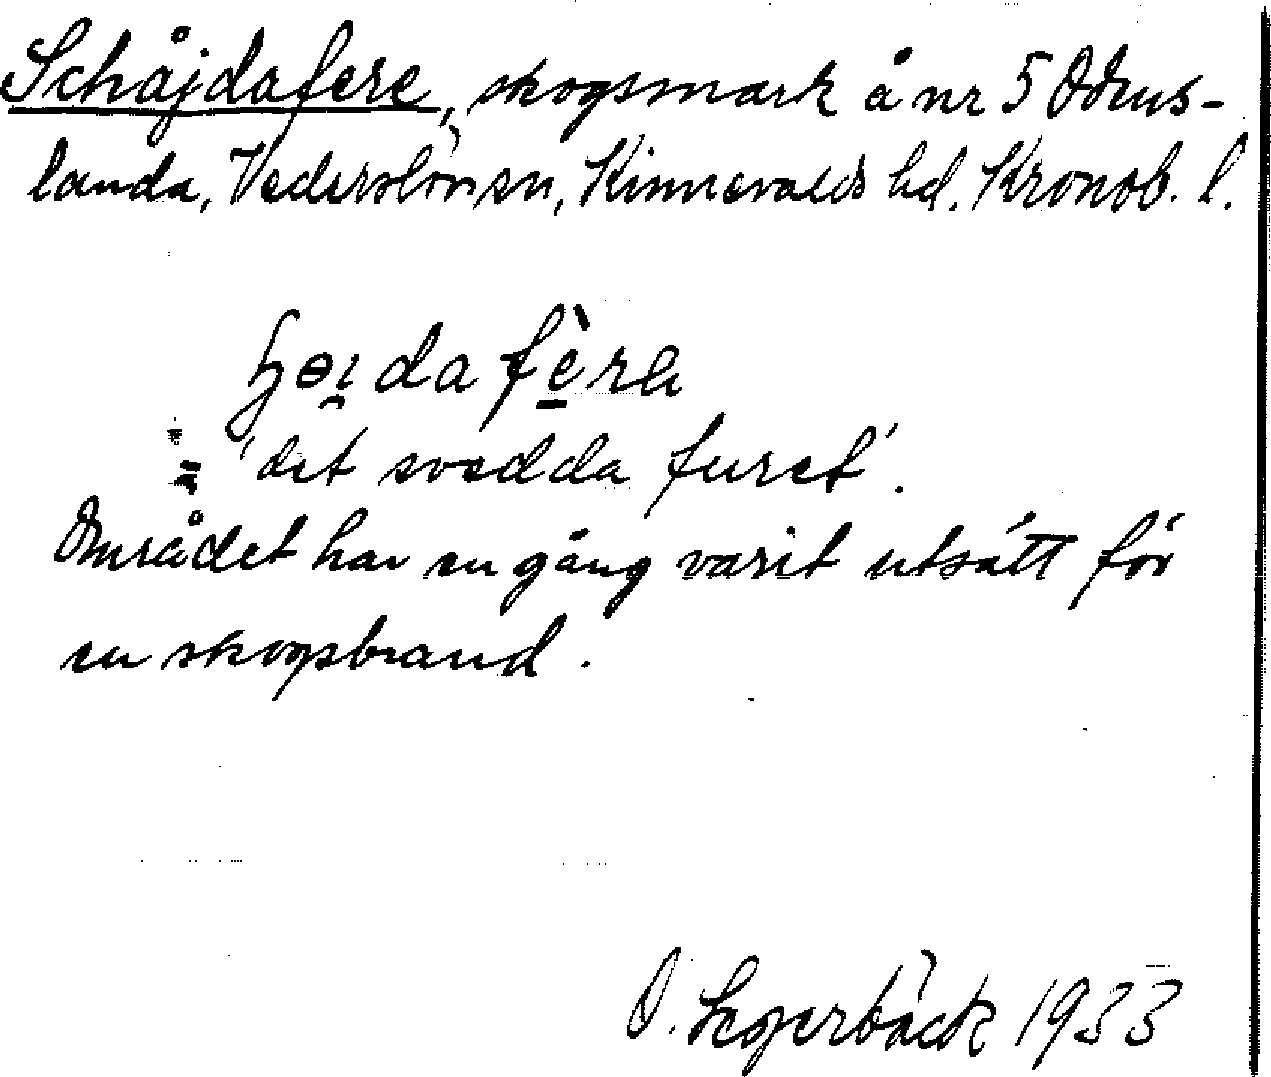 Schåjdafere, skogsmark å nr 5 Odens-
landa, Vederslöv sn, Kinnevalds hd. Kronob. l.
dafèra
= 'det svedda furet'.
Området har en gång varit utsatt för
en skogsbrand.
O. Segerbäck 1933